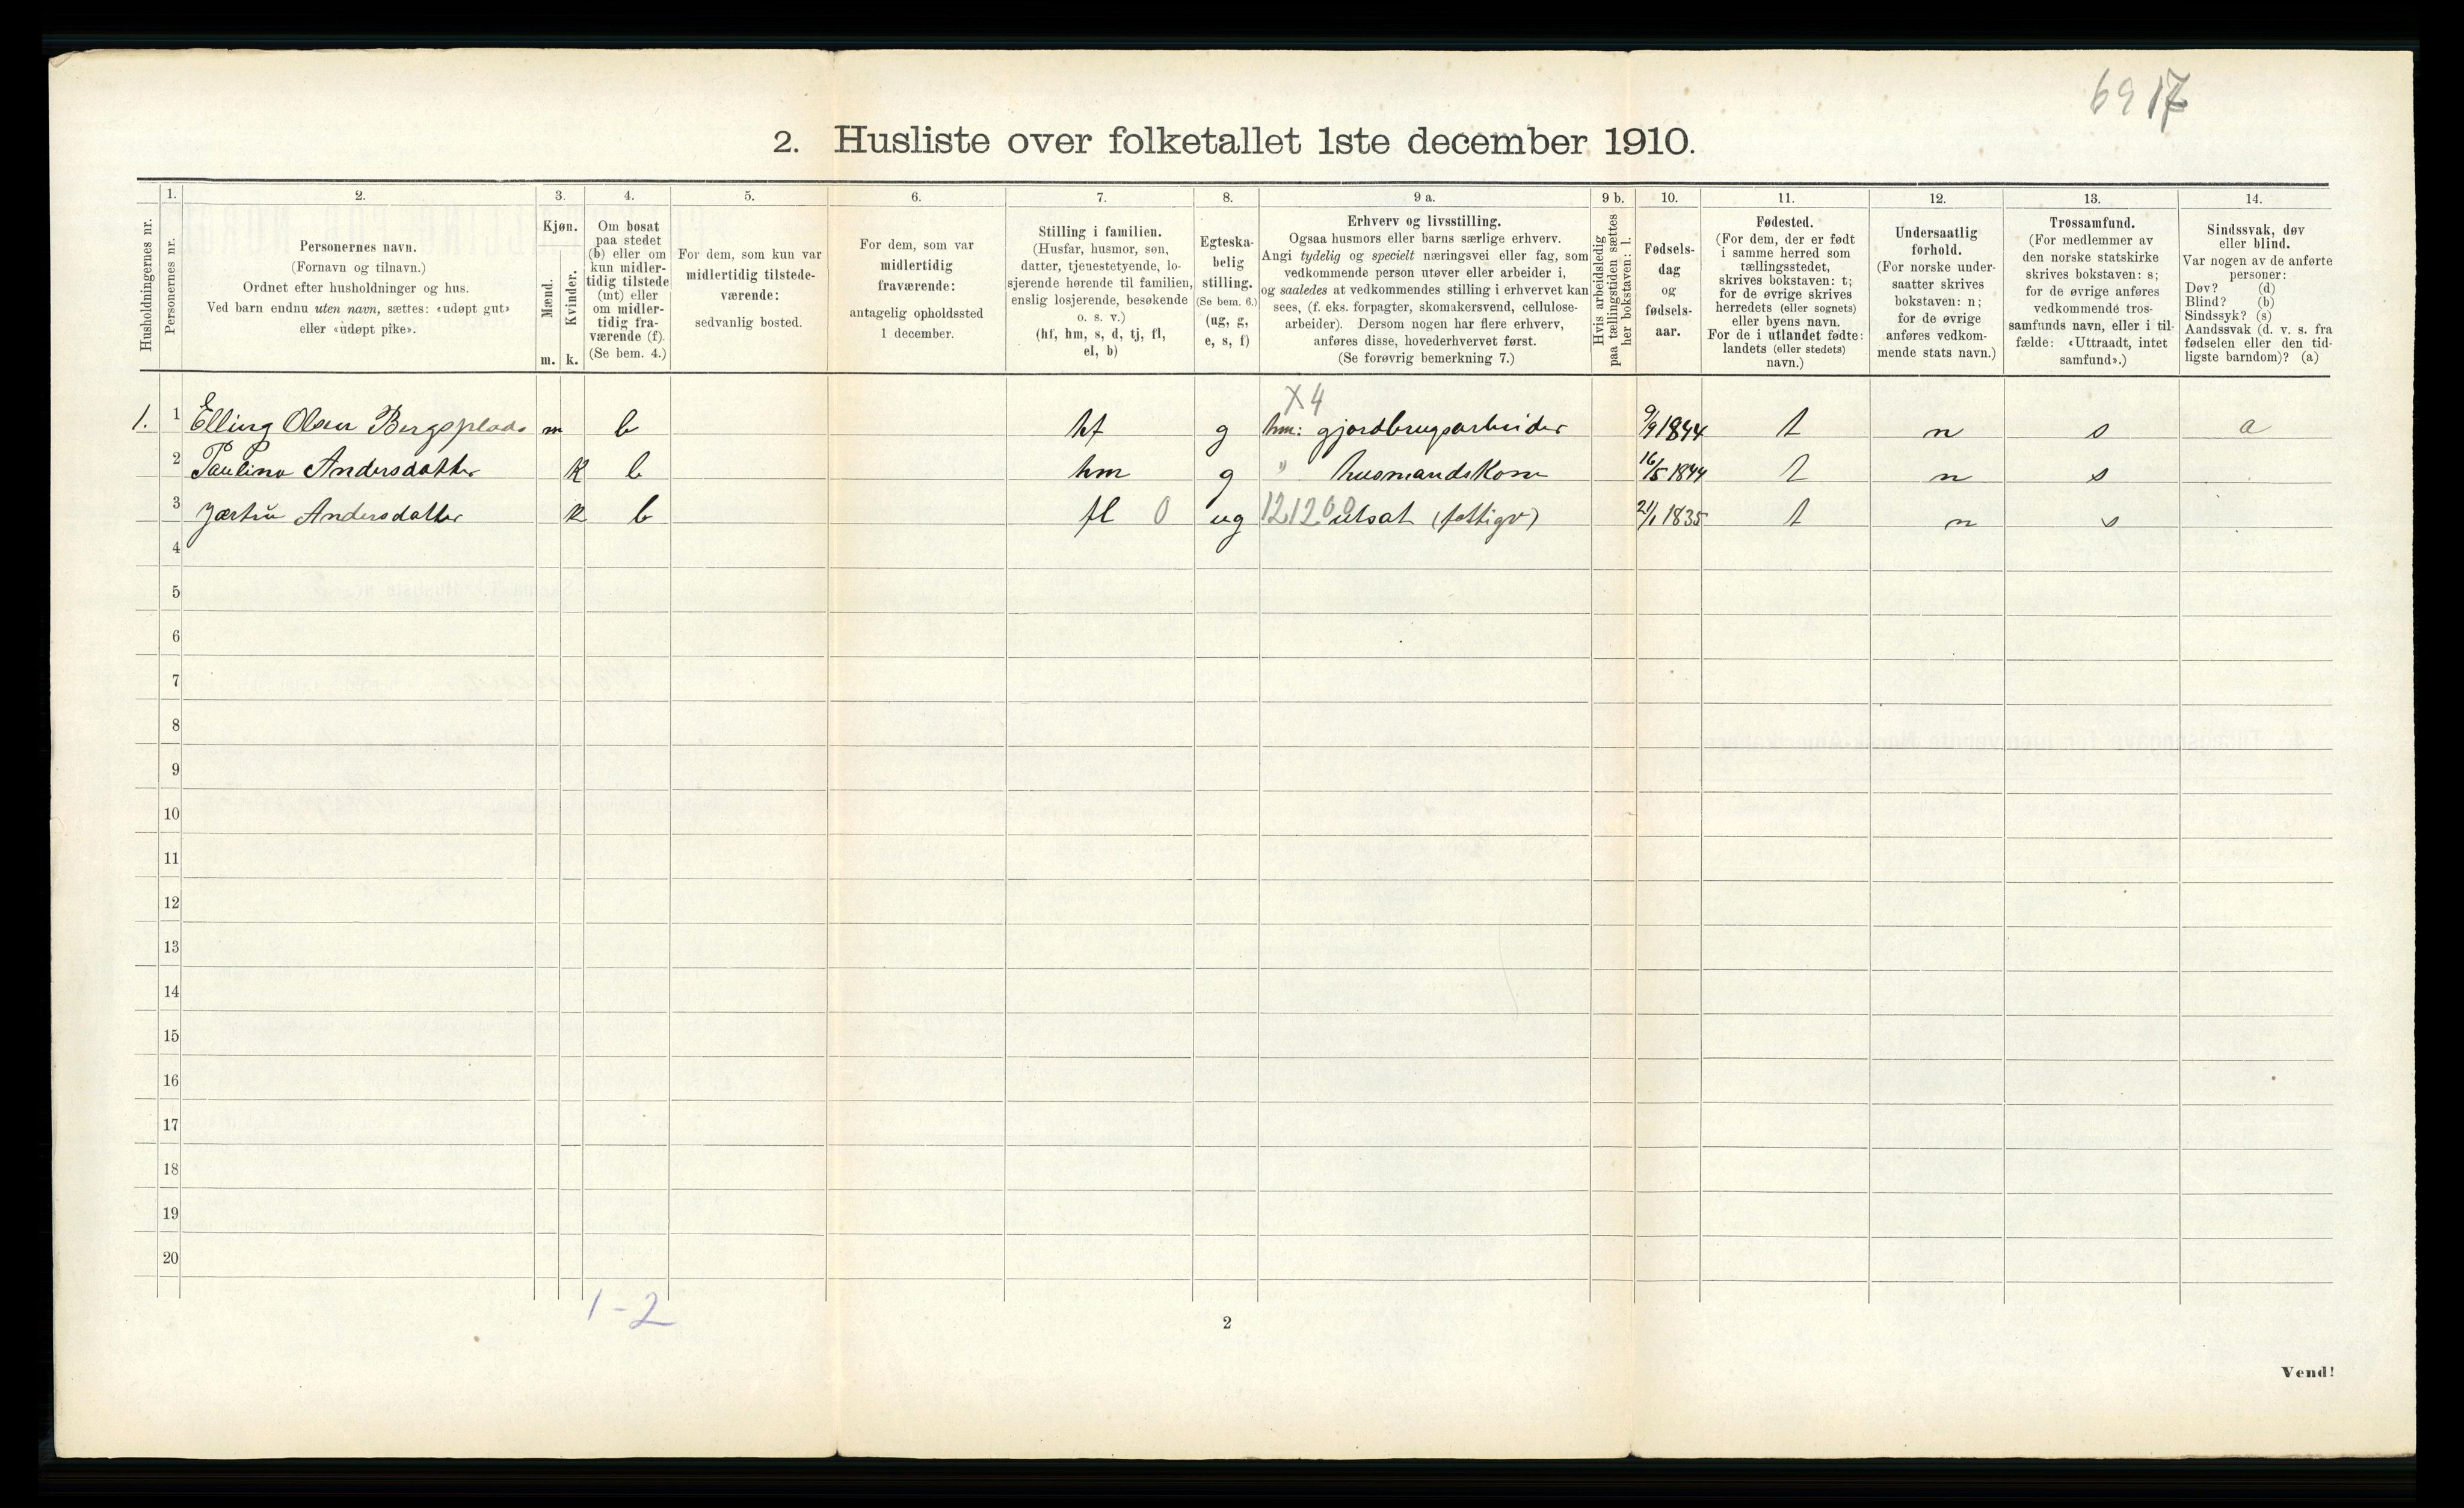 69 17
2. Husliste over folketallet 1ste december 1910.
Husholdningernes nr.
1.
Personernes nr.
2.
Personernes navn.
(Fornavn og tilnavn.)
Ordnet efter husholdninger og hus.
Ved barn endnu uten navn, sættes: «udøpt gut»
eller «udøpt pike».
3.
Kjøn.
Mænd.
Kvinder.
m. k.
4.
Om bosat
paa stedet
(b) eller om
kun midler-
tidig tilstede
(mt) eller
om midler-
tidig fra-
værende (f).
(Se bem. 4.)
5.
For dem, som kun var
midlertidig tilstede-
værende:
sedvanlig bosted.
6.
For dem, som var
midlertidig
fraværende:
antagelig opholdssted
1 december.
7.
Stilling i familien.
(Husfar, husmor, søn,
datter, tjenestetyende, lo-
sjerende hørende til familien,
enslig losjerende, besøkende
o. s. v.)
(hf, hm, s, d, tj, fl,
el, b)
8.
Egteska-
belig
stilling.
(Se bem. 6.)
(ug, g,
e, s, f)
9 a.
Erhverv og livsstilling.
Ogsaa husmors eller barns særlige erhverv.
Angi tydelig og specielt næringsvei eller fag, som
vedkommende person utøver eller arbeider i,
og saaledes at vedkommendes stilling i erhvervet kan
sees, (f. eks. forpagter, skomakersvend, cellulose-
arbeider). Dersom nogen har flere erhverv,
anføres disse, hovederhvervet først.
(Se forøvrig bemerkning 7.)
9 b.
Hvis arbeidsledig
paa tællingstiden sættes
her bokstaven: l.
10.
Fødsels-
dag
og
fødsels-
aar.
11.
Fødested.
(For dem, der er født
i samme herred som
tællingsstedet,
skrives bokstaven: t;
for de øvrige skrives
herredets (eller sognets)
eller byens navn.
For de i utlandet fødte:
landets (eller stedets)
navn.)
12.
Undersaatlig
forhold.
(For norske under-
saatter skrives
bokstaven: n;
for de øvrige
anføres vedkom-
mende stats navn.)
13.
Trossamfund.
(For medlemmer av
den norske statskirke
skrives bokstaven: s;
for de øvrige anføres
vedkommende tros-
samfunds navn, eller i til-
fælde: «Uttraadt, intet
samfund».)
14.
Sindssvak, døv
eller blind.
Var nogen av de anførte
personer:
Døv? (d)
Blind? (b)
Sindssyk? (s)
Aandssvak (d. v. s. fra
fødselen eller den tid-
ligste barndom)? (a)
X4
1. 1 Elling Olsen Bergsplads m b hf g hm: gjordbrugsarbeider 9/9 1844 t n s a
2 Paulina Andersdatter k b hm g " husmandskone 16/5 1844 t n s
3 Andersdatter k b fl 0 ug 121200 utsat (fattigv) 21/1 1835 t n s
4
5
6
7
8
9
10
11
12
13
14
15
16
17
18
19
20
1-2
2
Vend!